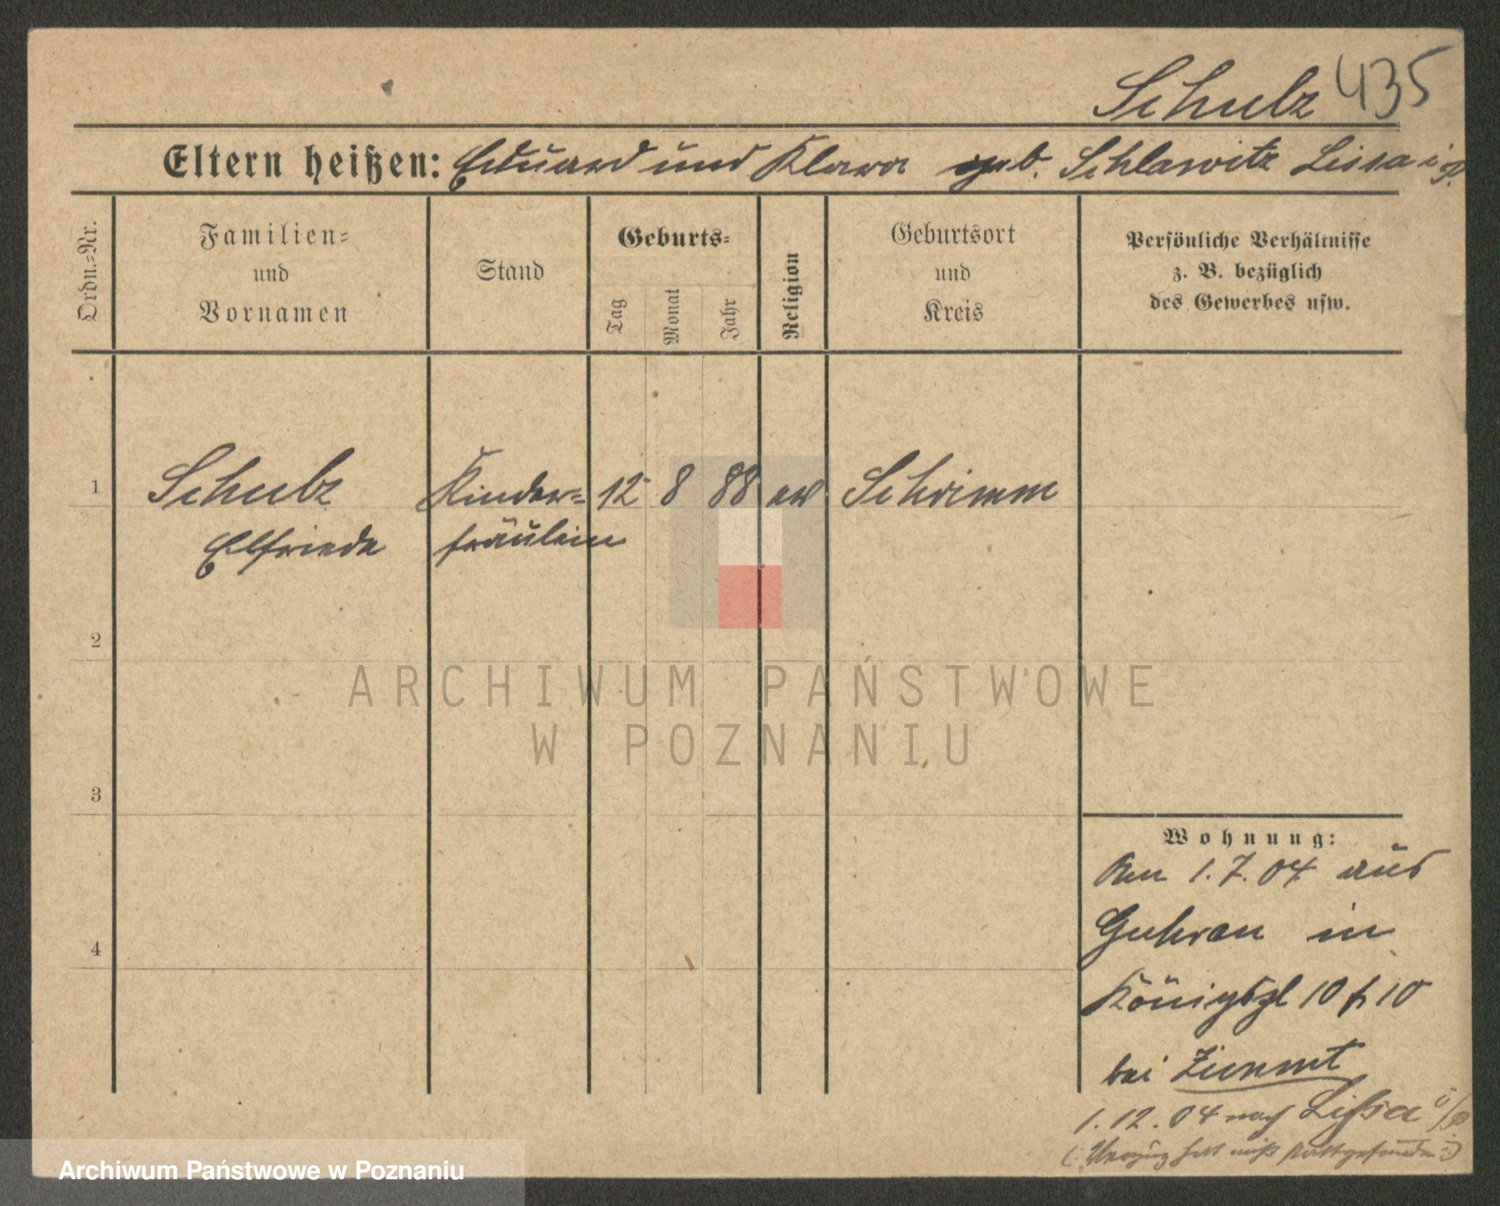 Schulz 435
Eltern heißen: Eduard und Klara geb. Schlawitz Lissa i P.
Ordn.-Nr.
Familien-
und
Vornamen
Stand
Geburts-
Tag
Monat
Jahr
Religion
Geburtsort
und
Kreis
Persönliche Verhältnisse
z. B. bezüglich
des Gewerbes usw.
1 Schulz Kinder- 12 8 88 ev Schrimm
Elfriede fräulein
2
3
4
Wohnung:
Am 1.7.04 aus
Guhrau in
Königspl 10 10
bei
1.12.04 nach Lissa i/P
(: Umzug hat nicht stattgefunden :)
ARCHIWUM PAŃSTWOWE
W POZNANIU
Archiwum Państwowe w Poznaniu